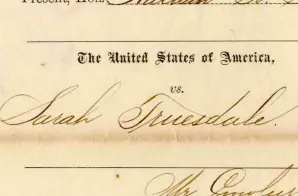 Present, Hon.
The United States of America,
vs.
Sarah Truesdale.
Mr.